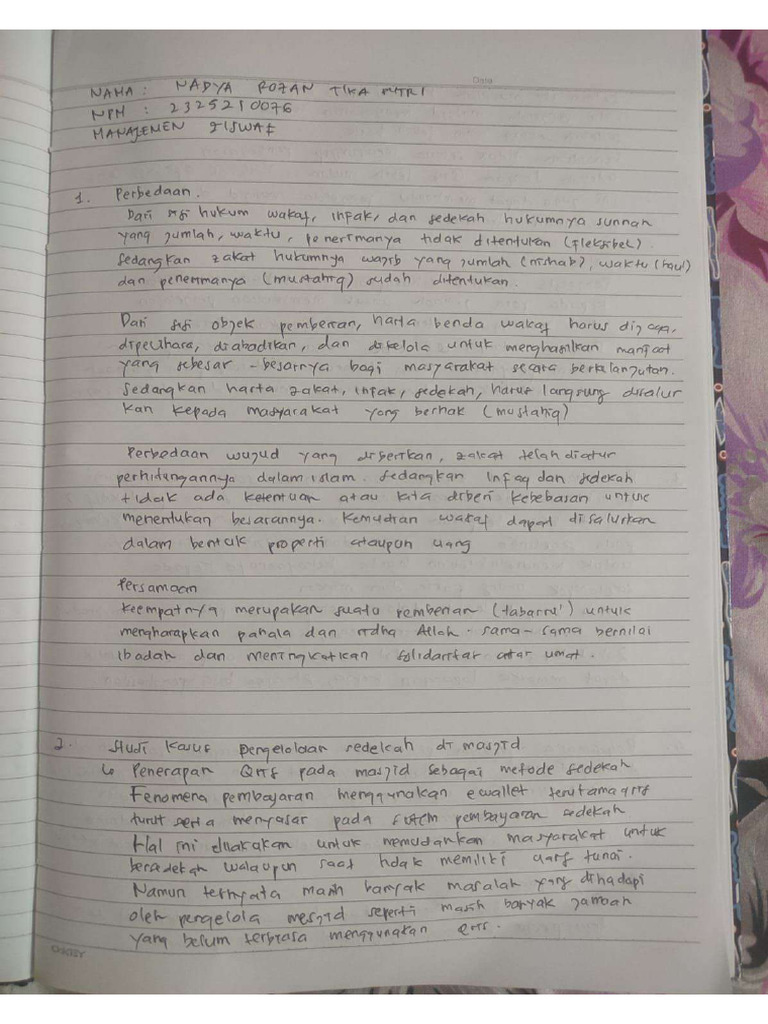 Date
NAMA : NADYA ROZAN TIKA PUTRI
NPM : 2325210076
MANAJEMEN ZISWAF
1. Perbedaan.
Dari segi hukum wakaf, infak, dan sedekah hukumnya sunnah
yang jumlah, waktu, penerimanya tidak ditentukan (fleksibel).
Sedangkan zakat hukumnya wajib yang jumlah (nishab), waktu (haul)
dan penerimanya (mustahiq) sudah ditentukan.
Dari segi objek pemberian, harta benda wakaf harus dijaga,
dipelihara, diabadikan, dan dikelola untuk menghasilkan manfaat
yang sebesar-besarnya bagi masyarakat secara berkelanjutan.
Sedangkan harta zakat, infak, sedekah, harus langsung disalur
kan kepada masyarakat yang berhak (mustahiq)
Perbedaan wujud yang diberikan, zakat telah diatur
perhitungannya dalam islam. Sedangkan infaq dan sedekah
tidak ada ketentuan atau kita diberi kebebasan untuk
menentukan besarannya. Kemudian wakaf dapat disalurkan
dalam bentuk properti ataupun uang
Persamaan
Keempatnya merupakan suatu pemberian (tabarru') untuk
mengharapkan pahala dan ridha Allah. sama-sama bernilai
ibadah dan meningkatkan solidaritas antar umat.
2. Studi kasus pengelolaan sedekah di masjid
↳ Penerapan QRIS pada masjid sebagai metode sedekah
Fenomena pembayaran menggunakan ewallet terutama qris
turut serta menyasar pada sistem pembayaran sedekah
Hal ini dilakukan untuk memudahkan masyarakat untuk
bersedekah walaupun saat tidak memiliki uang tunai.
Namun ternyata masih banyak masalah yang dihadapi
oleh pengelola mesjid seperti masih banyak jamaah
yang belum terbiasa menggunakan QRIS.